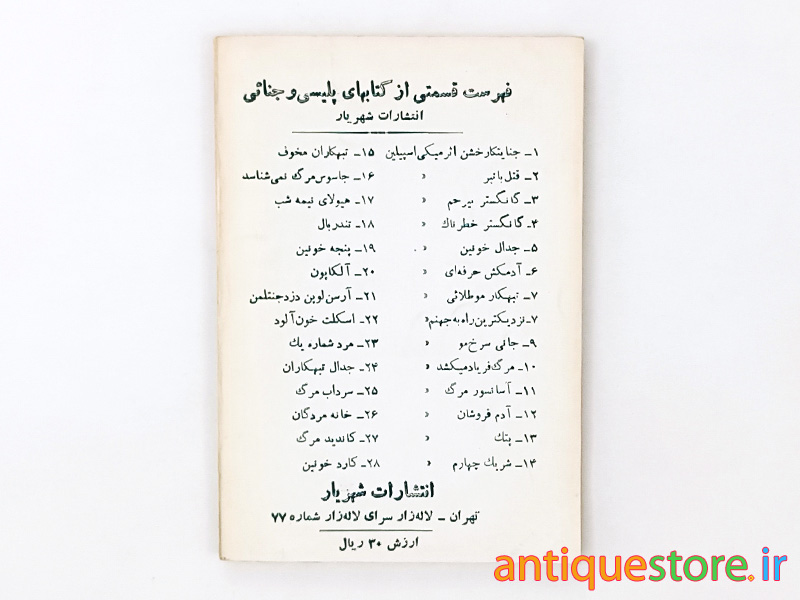 فهرست قسمتی از کتابهای پلیسی و جنائی
انتشارات شهریار
۱ـ جنایتکار خشن اثر میکی اسپیلین
۲ـ قتل با تبر »
۳ـ گانگستر بیرحم »
۴ـ گانگستر خطرناك »
۵ـ جدال خونین »
۶ـ آدمکش حرفه‌ای »
۷ـ تبهکار موطلائی »
۷ـ نزدیکترین راه به جهنم »
۹ـ جانی سرخ مو »
۱۰ـ مرگ فریاد میکشد »
۱۱ـ آسانسور مرگ »
۱۲ـ آدم فروشان »
۱۳ـ پتك »
۱۴ـ شریك چهارم »
۱۵ـ تبهکاران مخوف
۱۶ـ جاسوس مرگ نمی‌شناسد
۱۷ـ هیولای نیمه شب
۱۸ـ تندربال
۱۹ـ پنجه خونین
۲۰ـ آلکاپون
۲۱ـ آرسن لوپن دزد جنتلمن
۲۲ـ اسکلت خون آلود
۲۳ـ مرد شماره یك
۲۴ـ جدال تبهکاران
۲۵ـ سرداب مرگ
۲۶ـ خانه مردگان
۲۷ـ کاندید مرگ
۲۸ـ کارد خونین
انتشارات شهریار
تهران ـ لاله‌زار سرای لاله‌زار شماره ۷۷
ارزش ۳۰ ریال
antiquestore.ir